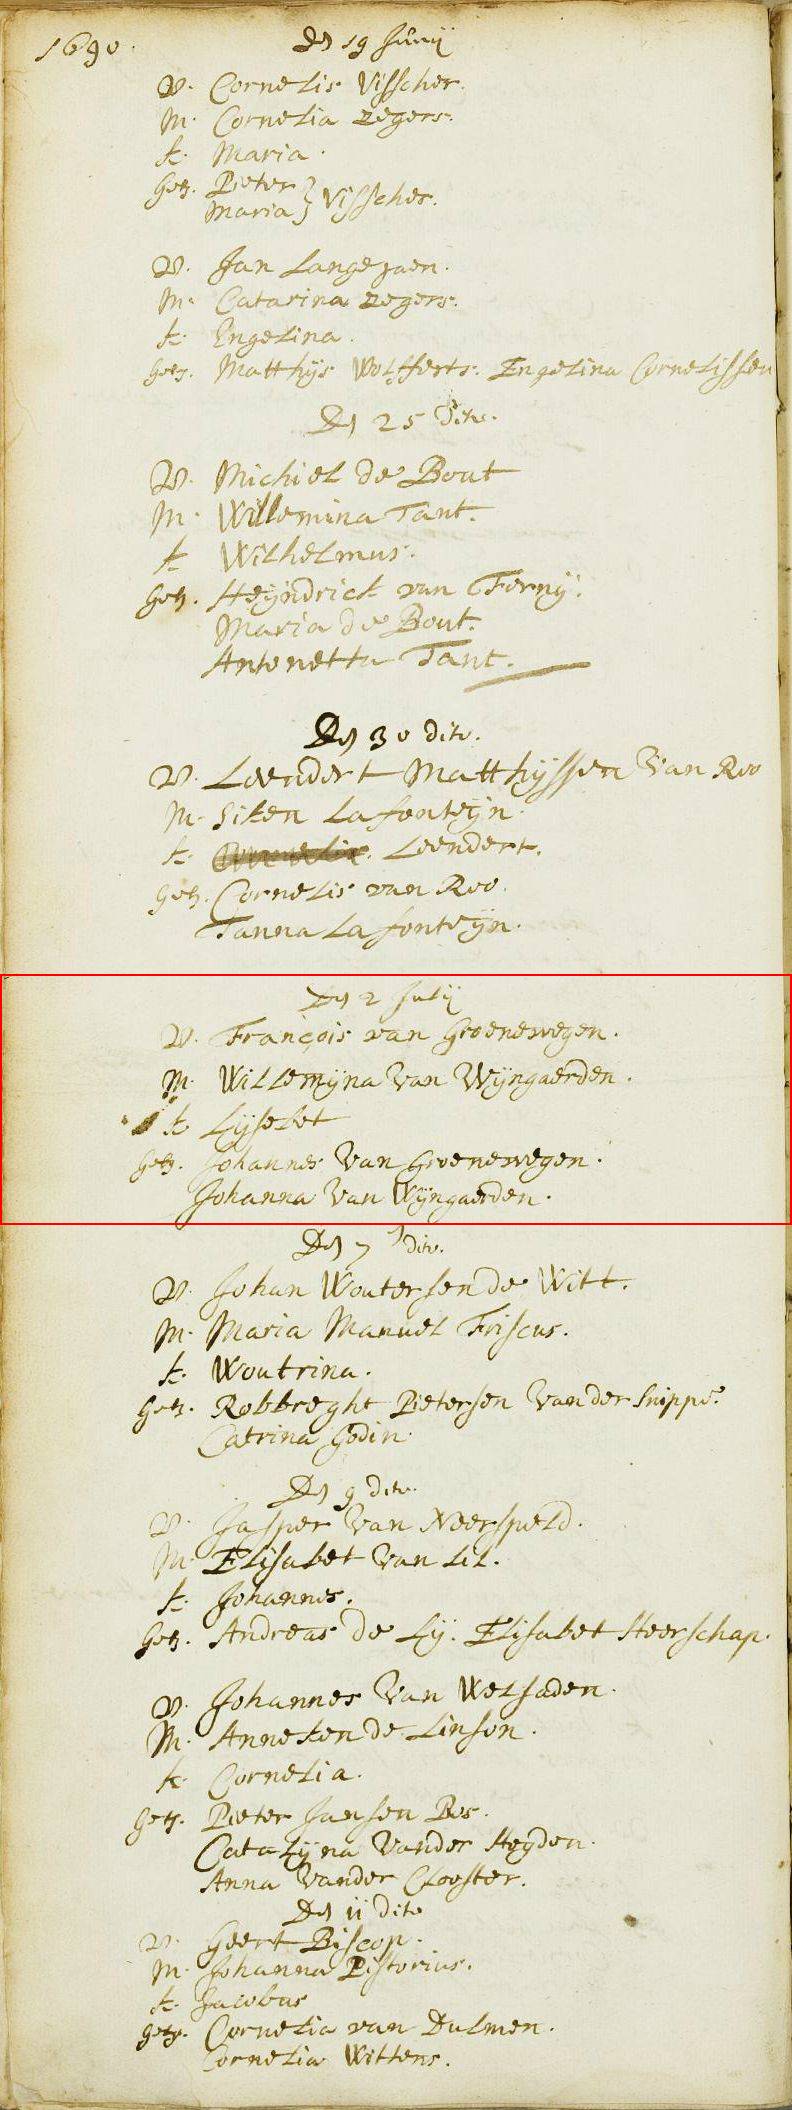 1690.
Den 19 Junij
V. Cornelis Visscher.
M. Cornelia zegers.
k. Maria.
Get. Pieter } Visscher.
Maria
V. Jan Langejaen.
M. Catarina zegers.
k. Engelina.
Get. Matthijs Wolfferts. Engelina Cornelissen
Den 25 dito.
V. Michiel de Bout
M. Willemina Tant.
k. Wilhelmus.
Get. Heijndrick van Ferny.
Maria de Bout.
Antonetta Tant.
Den 30 dito.
V. Leendert Matthijssen Van Roo
M. Siken Lafonteijn.
k. Leendert.
Get. Cornelis van Roo.
Tanna Lafonteijn.
Den 2 Julij
V. François van Groenewegen.
M. Willemijna Van Wijngaerden.
k Lijsebet
Get. Johannes Van Groenewegen.
Johanna Van Wijngaerden.
Den 7 dito.
V. Johan Woutersen de Witt.
M. Maria Manuel Friscus.
k. Woutrina.
Get. Robbreght Pietersen Vander Snippe.
Catrina Godin.
Den 9 dito.
V. Jasper Van Neerspeld.
M. Elisabet Van Lil.
k. Johannes.
Get. Andreas de Lij. Elisabet Heerschap.
V. Johannes Van Welsaden.
M. Anneken de Linson.
k. Cornelia.
Get. Pieter Jansen Bos.
Catalijna Vander Heyden.
Anna Vander Clooster.
Den 11 dito
V. Geert Biscop.
M. Johanna Pistorius.
k. Jacobus
Get. Cornelia van Dulmen.
Cornelia Wittens.